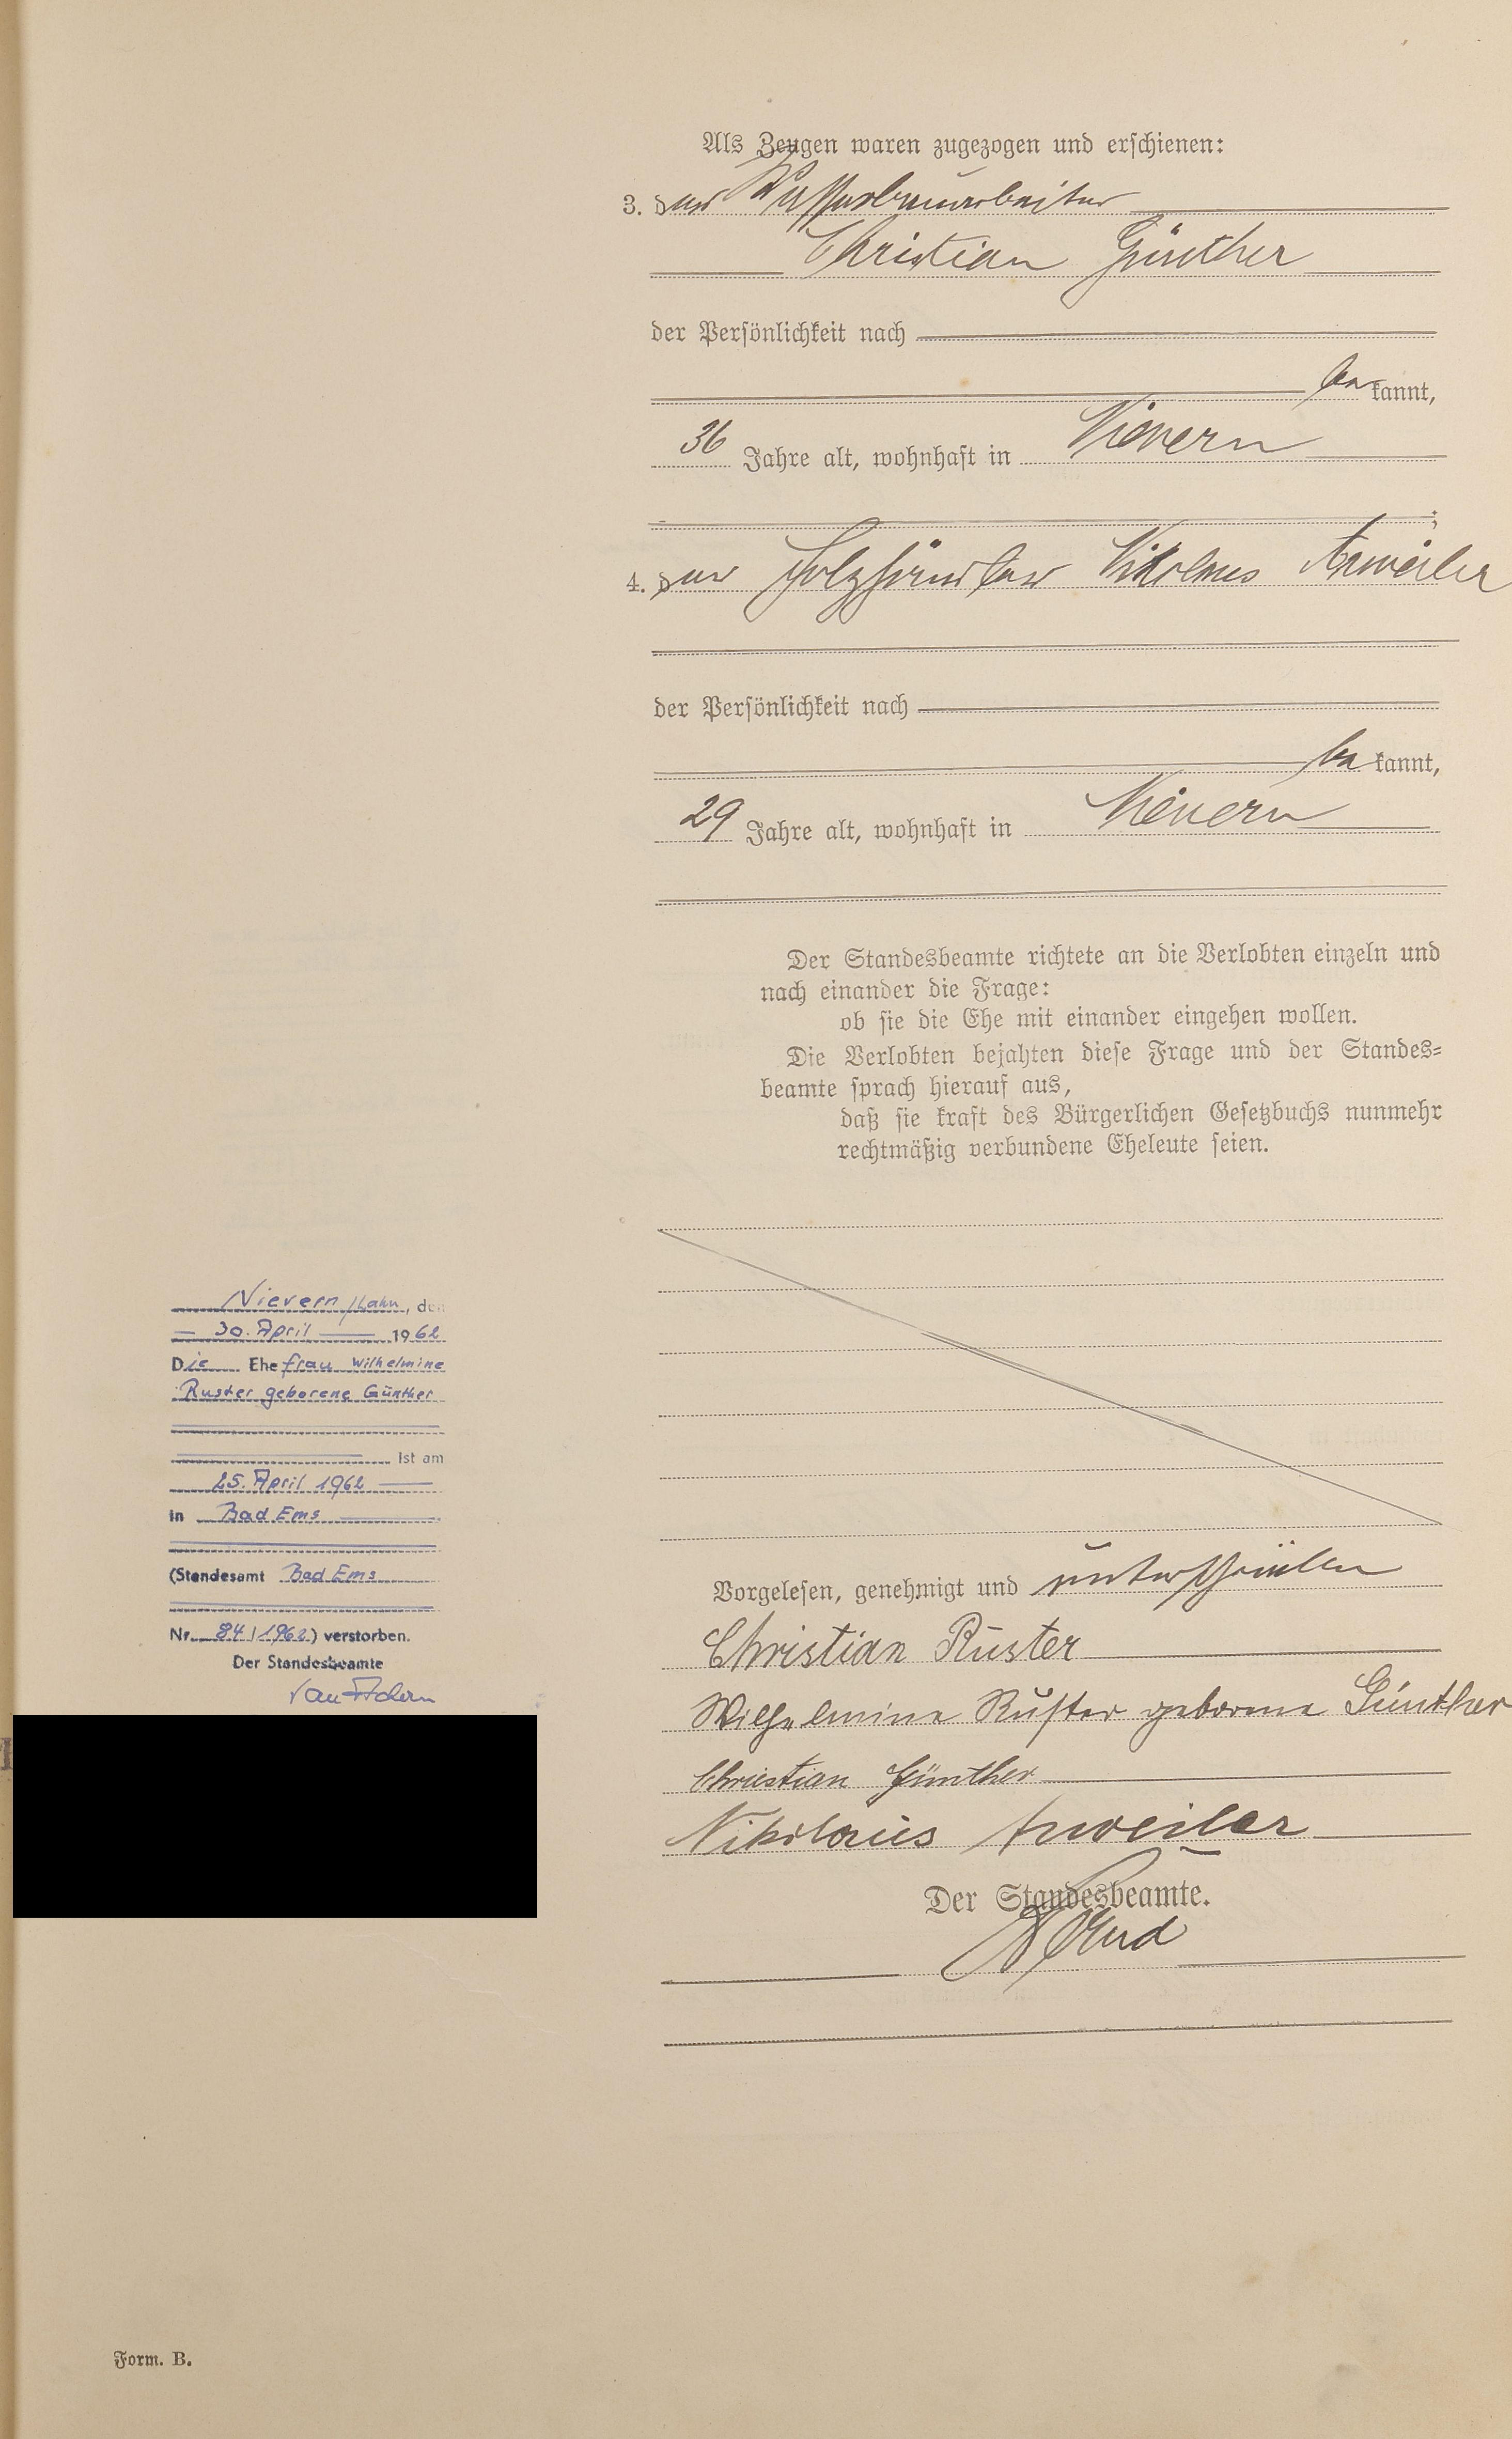 Als Zeugen waren zugezogen und erschienen:
3. der Wasserbauarbeiter
Christian Günther
der Persönlichkeit nach
be kannt,
36 Jahre alt, wohnhaft in Nievern
;
4. der Holzhändler Nikolaus Anweiler
der Persönlichkeit nach
be kannt,
29 Jahre alt, wohnhaft in Nievern
Der Standesbeamte richtete an die Verlobten einzeln und
nach einander die Frage:
ob sie die Ehe mit einander eingehen wollen.
Die Verlobten bejahten diese Frage und der Standes=
beamte sprach hierauf aus,
daß sie kraft des Bürgerlichen Gesetzbuchs nunmehr
rechtmäßig verbundene Eheleute seien.
Vorgelesen, genehmigt und unterschrieben
Christian Ruster
Wilhelmine Ruster geborene Günther
Christian Günther
Nikolaus Anweiler
Der Standesbeamte.
Nievern/Lahn, den
30. April 1962
Die Ehefrau Wilhelmine
Ruster geborene Günther
ist am
25. April 1962
in Bad Ems
(Standesamt Bad Ems
Nr. 84/1962) verstorben.
Der Standesbeamte
Form. B.